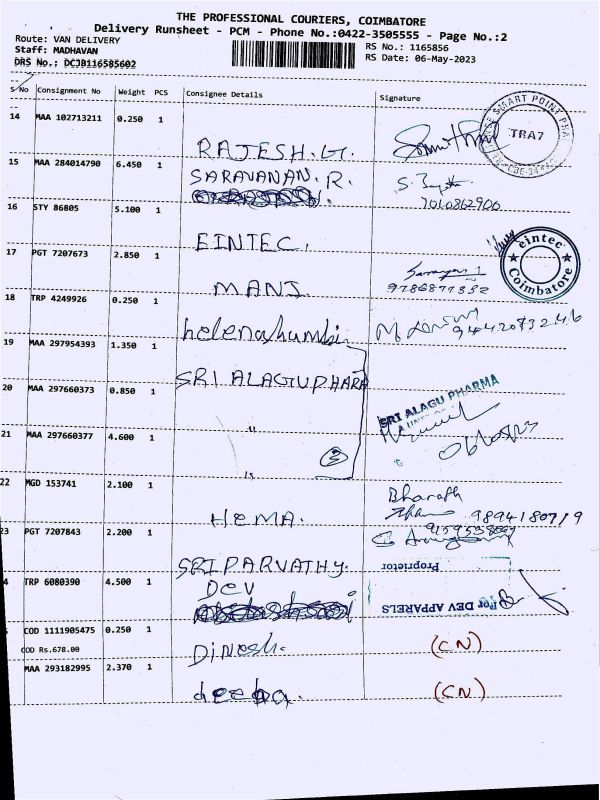 THE PROFESSIONAL COURIERS, COIMBATORE
Delivery Runsheet - PCM - Phone No.:0422-3505555 - Page No.:2
Route: VAN DELIVERY
RS No.: 1165856
Staff: MADHAVAN
RS Date: 06-May-2023
DRS No.: DCJB116585602
S/No Consignment No Weight PCS Consignee Details Signature
14 MAA 102713211 0.250 1 RAJESH. TRA7
15 MAA 284014790 6.450 1 SARAVANAN. R.
7010862900
16 STY 86805 5.100 1 EINTEC. eintec Coimbatore
17 PGT 7207673 2.850 1 MANJ.
18 TRP 4249926 0.250 1
19 MAA 297954393 1.350 1 SRI ALAGU PHARA
20 MAA 297660373 0.850 1 " SRI ALAGU PHARMA
21 MAA 297660377 4.600 1 "
3
22 MGD 153741 2.100 1 HEMA. Bharath
9894180719
23 PGT 7207843 2.200 1 SRI PARVATHY.
Proprietor
4 TRP 6080390 4.500 1 DEV For DEV APPARELS
COD 1111905475 0.250 1 Dinesh. (CN)
COD Rs.678.00
MAA 293182995 2.370 1 deeba. (CN)